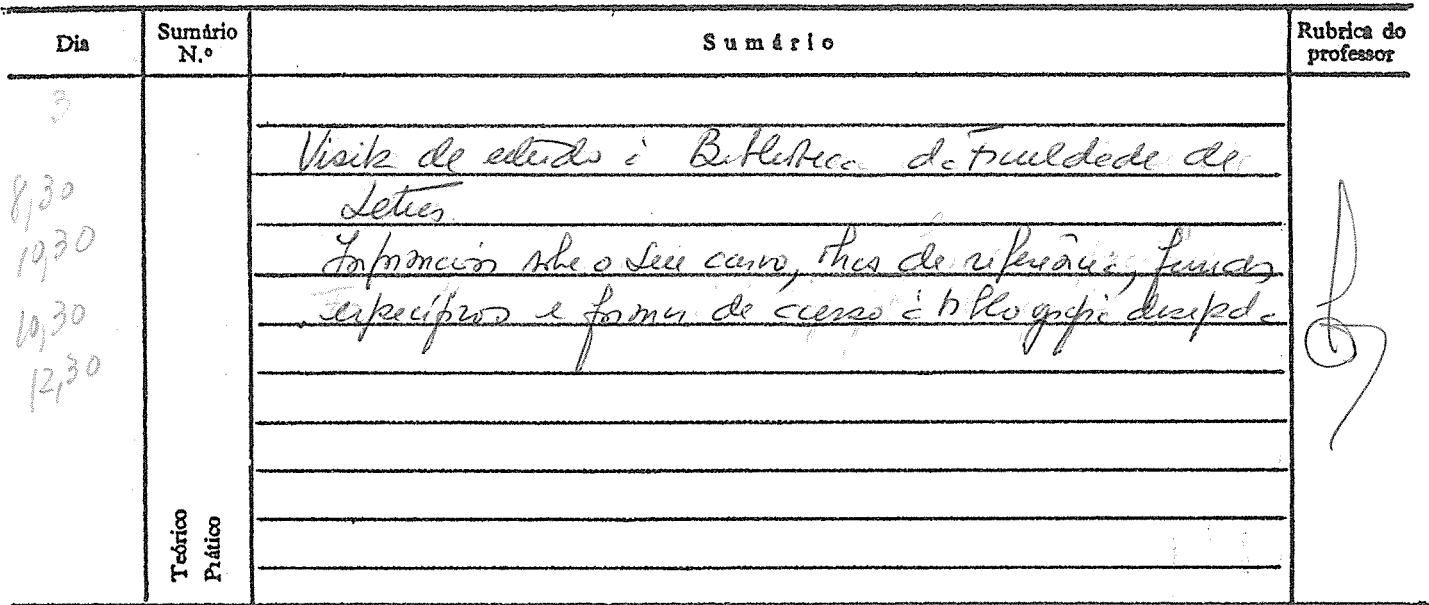 Dia
Sumário N.º
Sumário
Rubrica do professor
3
8,30
10,30
10,30
12,30
Visita de estudo à Biblioteca da Faculdade de
Letras
Informação sobre o seu acervo, obras de referência, fundos
específicos e formas de acesso à bibliografia desejada
Teórico
Prático